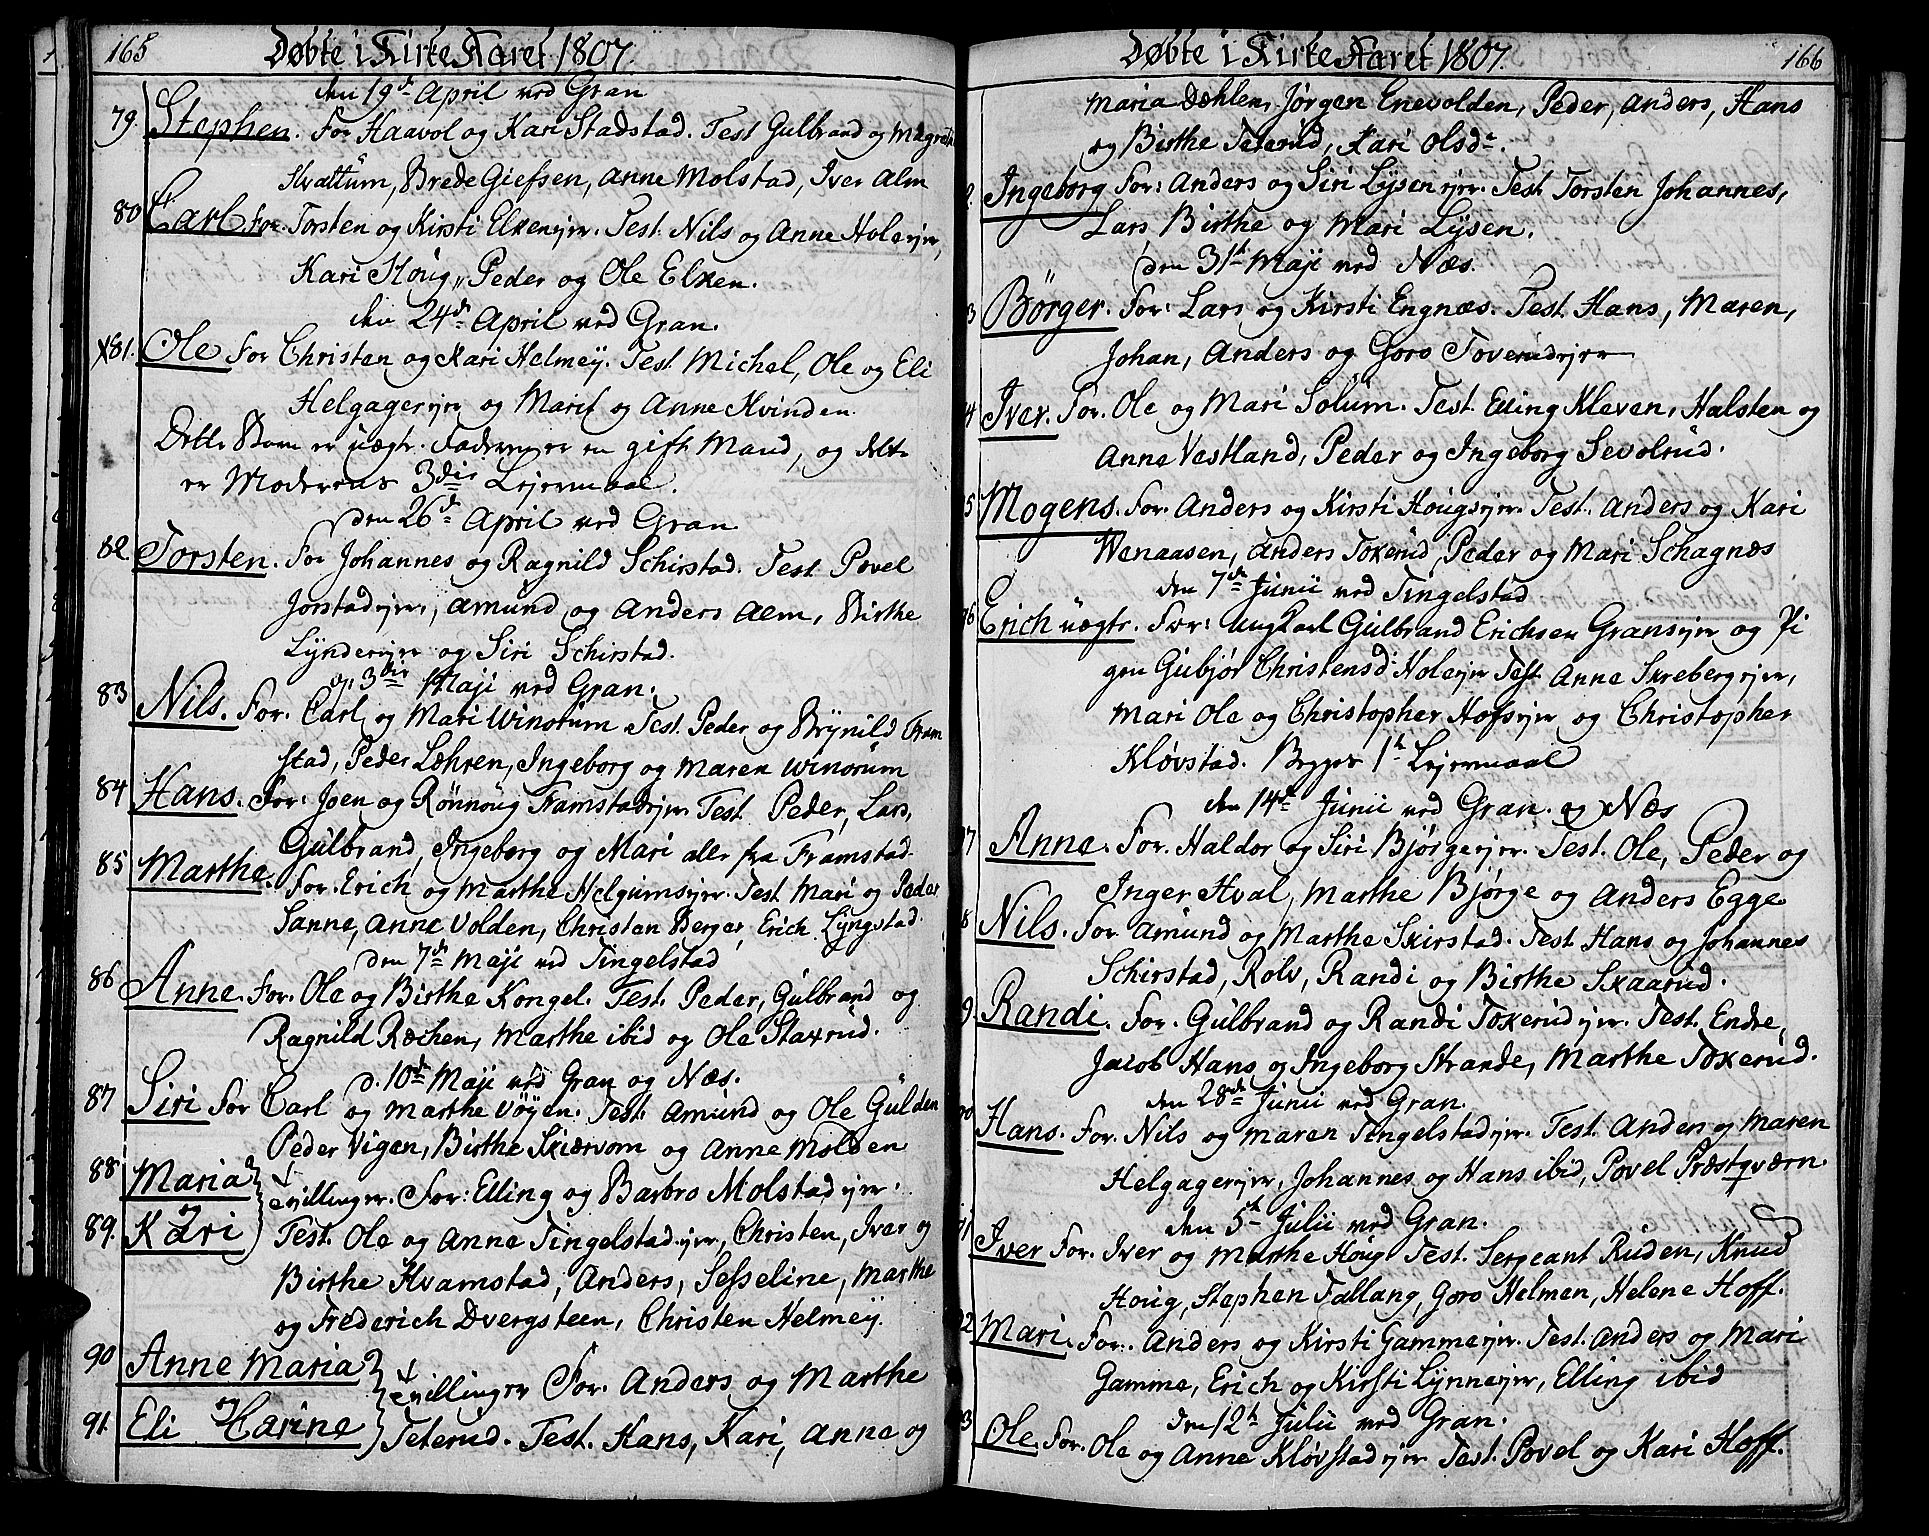 165 Døbte i Kirke Aaret 1807.
den 19de April ved Gran
79. Stephen. For Haavol og Kari Stadstad. Test Gulbrand og Magrethe
Hvattum, Brede Giefsen, Anne Molstad, Iver Alm
80 Carl For. Torsten og Kirsti Elkenejer. Test. Nils og Anne Holeejer,
Kari Houg, Peder og Ole Elken.
den 24de April ved Gran.
X81. Ole For Christen og Kari Helmey. Test. Michel, Ole og Eli
Helgagerejer og Marit og Anne Kvinden
Dette Barn er uægte. Faderen er en gift Mand, og dette
er Moderens 3die Lejermaal.
den 26de April ved Gran
82 Torsten. For Johannes og Ragnild Schirstad. Test. Povel
Jorstadejer, Amund og Anders Alm, Birthe
Lynderejer og Siri Schirstad.
d. 3die Maji ved Gran.
83 Nils. For. Carl og Mari Winorum Test. Peder og Brynild Fram
stad, Peder Læhren, Ingeborg og Maren Winorum
84 Hans. For: Joen og Rønnoug Framstadejer Test. Peder, Lars,
Gulbrand, Ingeborg og Mari alle fra Framstad
85 Marthe. For. Erich og Marthe Helgumsejer. Test Mari og Peder
Sanne, Anne Volden, Christen Berger, Erich Lyngstad.
den 7de Maji ved Tingelstad
86 Anne. For. Ole og Birthe Kongel. Test. Peder, Gulbrand og
Ragnild Ræchen, Marthe ibid og Ole Staxrud.
d. 10de Maji ved Gran og Næs.
87 Siri For Carl og Marthe Vøyen. Test. Amund og Ole Gulden
Peder Vigen, Birthe Skiærvom og Anne Molden
88 Maria og Tvillinger. For: Elling og Barbro Molstadejer.
89. Kari Test. Ole og Anne Tingelstadejer, Christen, Iver og
Birthe Hvamstad, Anders, Sesseline, Marthe
og Frederich Dvergsteen, Christen Helmey.
90 Anne Maria og Tvillinger For. Anders og Marthe
91. Eli Carine Teterud. Test. Hans, Kari, Anne og
Døbte i Kirke Aaret 1807. 166
Maria Dæhlen, Jørgen Enevolden, Peder, Anders, Hans
og Birthe Teterud, Kari Olsdr.
2. Ingeborg For: Anders og Siri Lysenejer. Test Torsten Johannes,
Lars Birthe og Mari Lysen.
den 31te Maji ved Næs.
3 Børger. For: Lars og Kirsti Engnæs. Test. Hans, Maren,
Johan, Anders og Goro Toverudejer
4 Iver. For. Ole og Mari Solum. Test. Elling Kleven, Halsten og
Anne Vestland, Peder og Ingeborg Sevolrud.
5 Mogens. For. Anders og Kirsti Hougsejer. Test. Anders og Kari
Wenaasen, Anders Toxerud, Peder og Mari Schagnæs
den 7de Junii ved Tingelstad
96 Erich uægte. For: Ungkarl Gulbrand Erichsen Gransejer og Pi
gen Gubjør Christensd: Holeejer Test. Anne Skrebergejer,
Mari Ole og Christopher Hofsejer og Christopher
Kløvstad. Begges 1te Lejermaal
den 14de Junii ved Gran. og Næs
97 Anne. For. Haldor og Siri Bjørgeejer. Test. Ole, Peder og
Inger Hval, Marthe Bjørge og Anders Egge
8 Nils. For Amund og Marthe Skirstad. Test Hans og Johannes
Schirstad, Rolv, Randi og Birthe Skaarud.
9 Randi. For. Gulbrand og Randi Toxerudejer. Test. Endre,
Jacob Hans og Ingeborg Strande, Marthe Toxerud.
den 28de Junii ved Gran.
00 Hans. For. Nils og Maren Tingelstadejer. Test. Anders og Maren
Helgagerejer, Johannes og Hans ibid, Povel Præstqværn.
den 5te Julii ved Gran.
01 Iver For. Iver og Marthe Houg Test. Sergeant Ruden, Knud
Houg, Stephen Fallang, Goro Helmen, Helene Hoff.
02 Mari. For. Anders og Kirsti Gammeejer. Test. Anders og Mari
Gamme, Erich og Kirsti Lynneejer, Elling ibid
den 12te Julii ved Gran.
03 Ole. For. Ole og Anne Kløvstadejer Test. Povel og Kari Hoff.